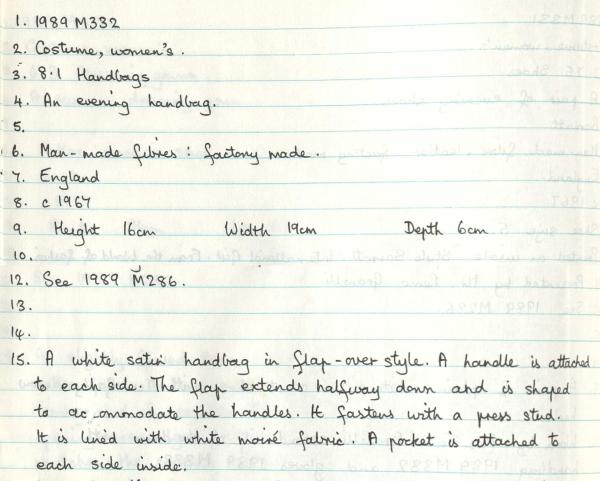 1. 1989 M332
2. Costume, women's.
3. 8.1 Handbags
4. An evening handbag.
5.
6. Man-made fibres : factory made.
7. England
8. c 1967
9. Height 16cm Width 19cm Depth 6cm
10.
12. See 1989 M286.
13.
14.
15. A white satin handbag in flap-over style. A handle is attached
to each side. The flap extends halfway down and is shaped
to ac ommodate the handles. It fastens with a press stud.
It is lined with white moiré fabric. A pocket is attached to
each side inside.